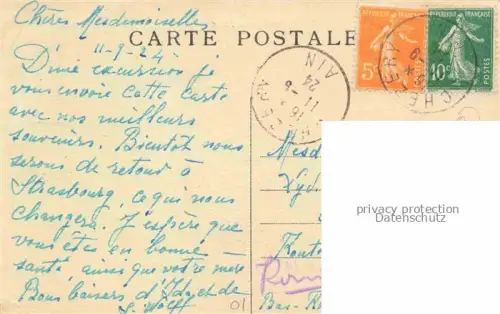 Chères Mesdemoiselles,
11-9-24
CARTE POSTALE
D'une excursion je
vous envoie cette carte
avec nos meilleurs
souvenirs. Bientôt nous
serons de retour à
Strasbourg, ce qui nous
changera. J'espère que
vous êtes en bonne
santé, ainsi que votre mère
Bons baisers d'Ida et de
S. Wolff
01
RÉPUBLIQUE FRANÇAISE
5c
POSTES
10c
AIN
16
11-9
24
Mesd
Bas-R
privacy protection
Datenschutz